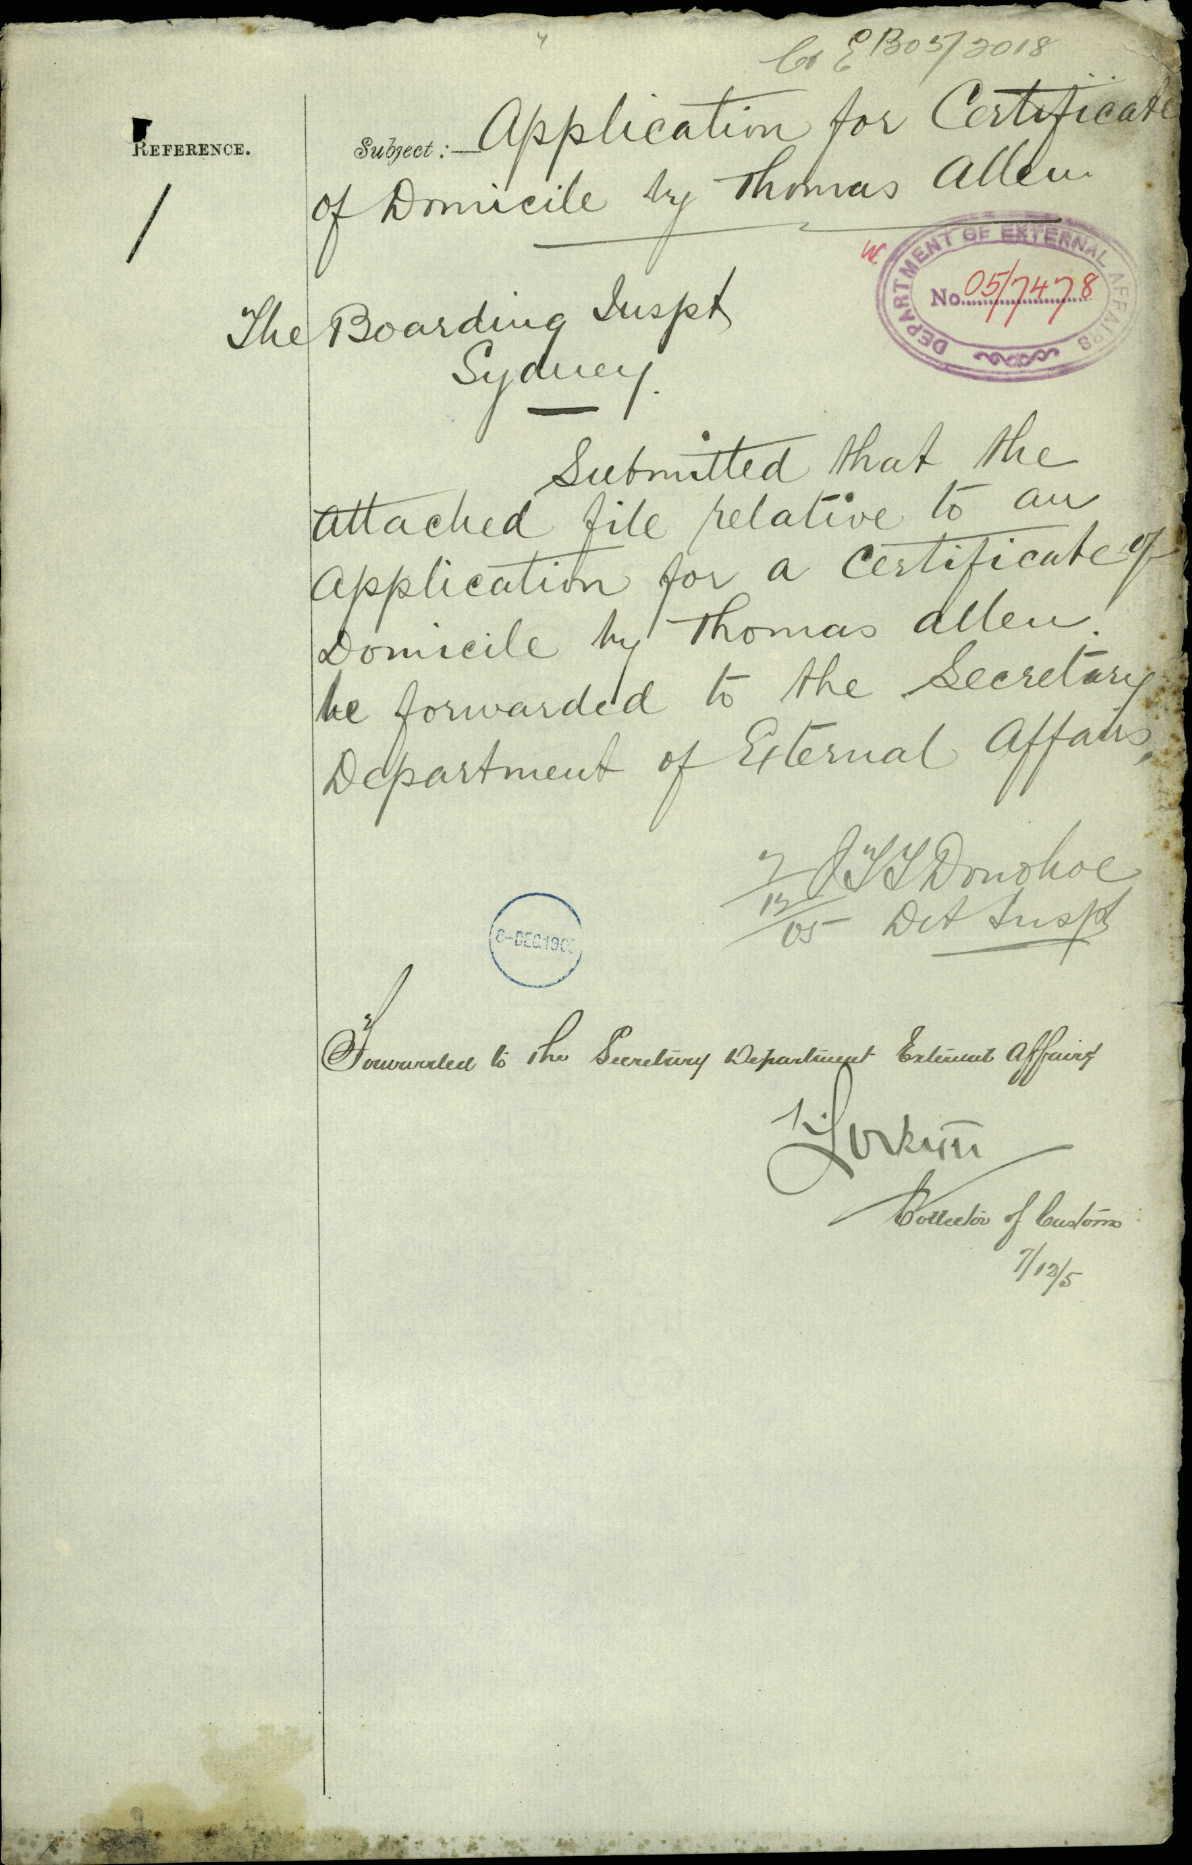 B05/2018
REFERENCE.
Subject:— Application for Certificate
of Domicile by Thomas Allen
DEPARTMENT OF EXTERNAL AFFAIRS
W.
No. 05/7478
The Boarding Inspt
Sydney.
Submitted that the
attached file relative to an
application for a Certificate of
Domicile by Thomas Allen.
be forwarded to the Secretary
Department of External Affairs,
7/12/05 Donohoe
Det Inspt
8-DEC.190
Forwarded to the Secretary Department External Affairs
Collector of Customs
7/12/5